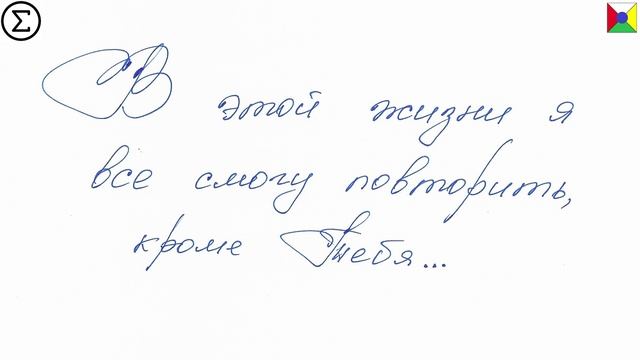 Σ
В этой жизни я
все смогу повторить,
кроме Тебя...